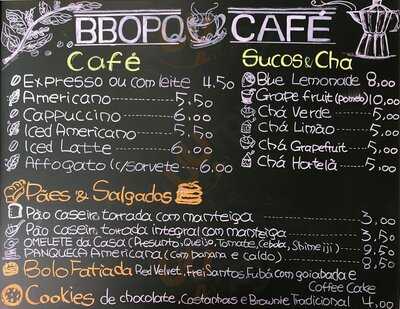 BBOPQ CAFÉ
Café
Expresso ou com leite 4,50
Americano 5,50
Cappuccino 6,00
Iced Americano 5,50
Iced Latte 6,00
Affogato (c/sorvete) 6,00
Sucos & Chá
Blue Lemonade 8,00
Grape fruit (pomelo) 10,00
Chá Verde 5,00
Chá Limão 5,00
Chá Grapefruit 5,00
Chá Hotelã 5,00
Pães & Salgados
Pão caseir. torrada com manteiga 3,00
Pão caseir. torrada integral com manteiga 3,50
OMELETE da Casa (Presunto, Queijo, Tomate, Cebola, Shimeiji) 9,50
PANQUECA Americana (com banana e caldo) 8,50
Bolo Fatiada Red Velvet, Frei Santos, Fubá com goiabada e
Coffee Cake
Cookies de chocolate, Castanhas e Brownie Tradicional 4,00